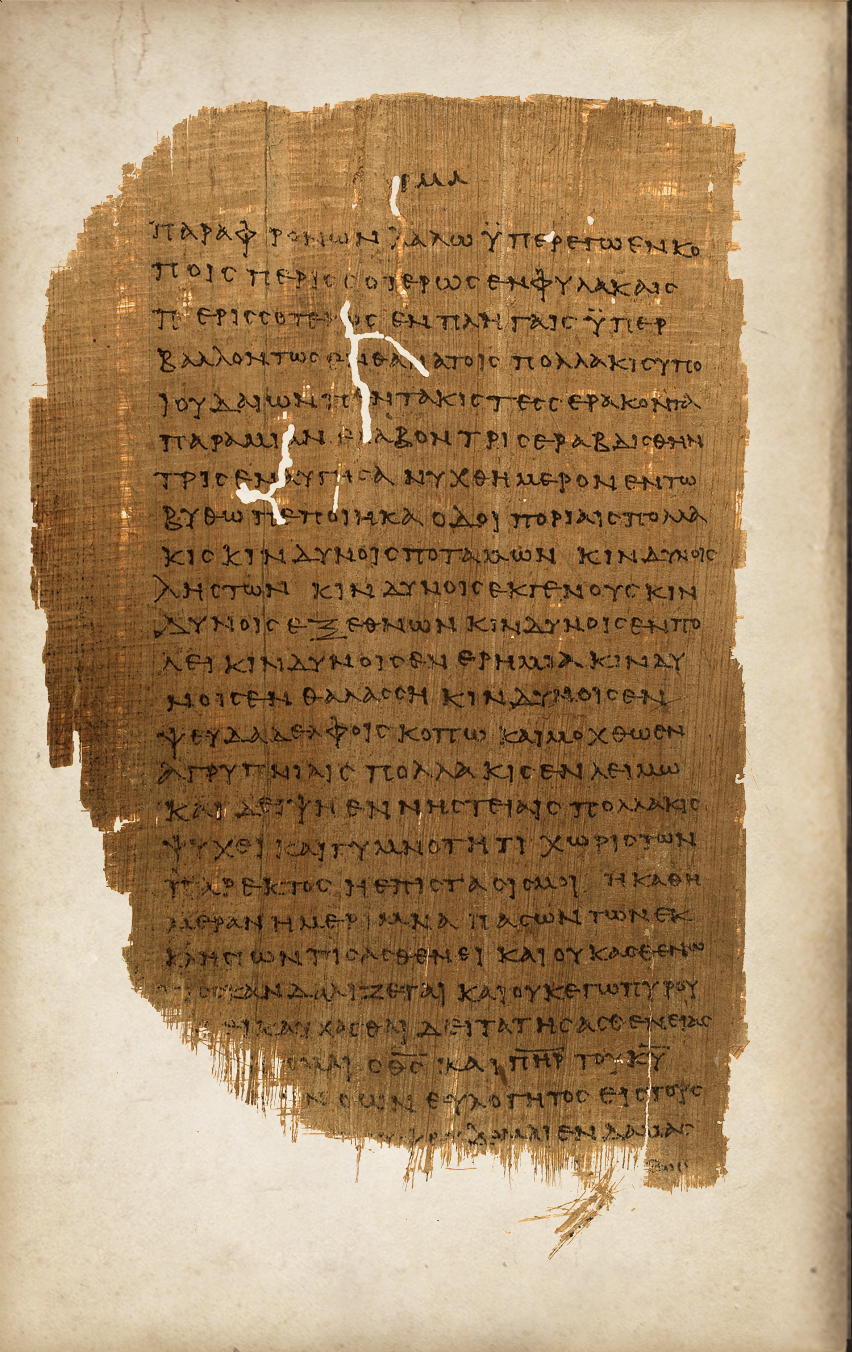 ΡΜΑ
ΠΑΡΑΦΡΟΝΩΝ ΛΑΛΩ ΫΠΕΡΕΓΩ ΕΝΚΟ
ΠΟΙC ΠΕΡΙCCΟΤΕΡΩC ΕΝ ΦΥΛΑΚΑΙC
ΠΕΡΙCCΟΤΕΡΩC ΕΝ ΠΛΗΓΑΙC ΫΠΕΡ
ΒΑΛΛΟΝΤΩC ΕΝ ΘΑΝΑΤΟΙC ΠΟΛΛΑΚΙC ΥΠΟ
ΙΟΥΔΑΙΩΝ ΠΕΝΤΑΚΙC ΤΕCCΕΡΑΚΟΝΤΑ
ΠΑΡΑ ΜΙΑΝ ΕΛΑΒΟΝ ΤΡΙC ΕΡΑΒΔΙCΘΗΝ
ΤΡΙC ΕΝΑΥΓΗCΑ ΝΥΧΘΗΜΕΡΟΝ ΕΝ ΤΩ
ΒΥΘΩ ΠΕΠΟΙΗΚΑ ΟΔΟΙΠΟΡΙΑΙC ΠΟΛΛΑ
ΚΙC ΚΙΝΔΥΝΟΙC ΠΟΤΑΜΩΝ ΚΙΝΔΥΝΟΙC
ΛΗCΤΩΝ ΚΙΝΔΥΝΟΙC ΕΚ ΓΕΝΟΥC ΚΙΝ
ΔΥΝΟΙC ΕΞ ΕΘΝΩΝ ΚΙΝΔΥΝΟΙC ΕΝ ΠΟ
ΛΕΙ ΚΙΝΔΥΝΟΙC ΕΝ ΕΡΗΜΙΑ ΚΙΝΔΥ
ΝΟΙC ΕΝ ΘΑΛΑCCΗ ΚΙΝΔΥΝΟΙC ΕΝ
ΨΕΥΔΑΔΕΛΦΟΙC ΚΟΠΩ ΚΑΙ ΜΟΧΘΩ ΕΝ
ΑΓΡΥΠΝΙΑΙC ΠΟΛΛΑΚΙC ΕΝ ΛΕΙΜΩ
ΚΑΙ ΔΕΙΨΗ ΕΝ ΝΗCΤΕΙΑΙC ΠΟΛΛΑΚΙC
ΨΥΧΕΙ ΚΑΙ ΓΥΜΝΟΤΗΤΙ ΧΩΡΙC ΤΩΝ
ΠΑΡΕΚΤΟC Η ΕΠΙCΤΑCΙC ΜΟΙ Η ΚΑΘΗ
ΜΕΡΑΝ Η ΜΕΡΙΜΝΑ ΠΑCΩΝ ΤΩΝ ΕΚ
ΚΛΗCΙΩΝ ΤΙC ΑCΘΕΝΕΙ ΚΑΙ ΟΥΚ ΑCΘΕΝΩ
CΚΑΝΔΑΛΙΖΕΤΑΙ ΚΑΙ ΟΥΚ ΕΓΩ ΠΥΡΟΥ
ΕΙ ΚΑΥΧΑCΘΑΙ ΔΕΙ ΤΑ ΤΗC ΑCΘΕΝΕΙΑC
ΟΜΑΙ Ο ΘC ΚΑΙ ΠΗΡ ΤΟΥ ΚΥ
Ο ΩΝ ΕΥΛΟΓΗΤΟC ΕΙC ΤΟΥC
ΨΕΥΔΟΜΑΙ ΕΝ ΔΑΜΑC